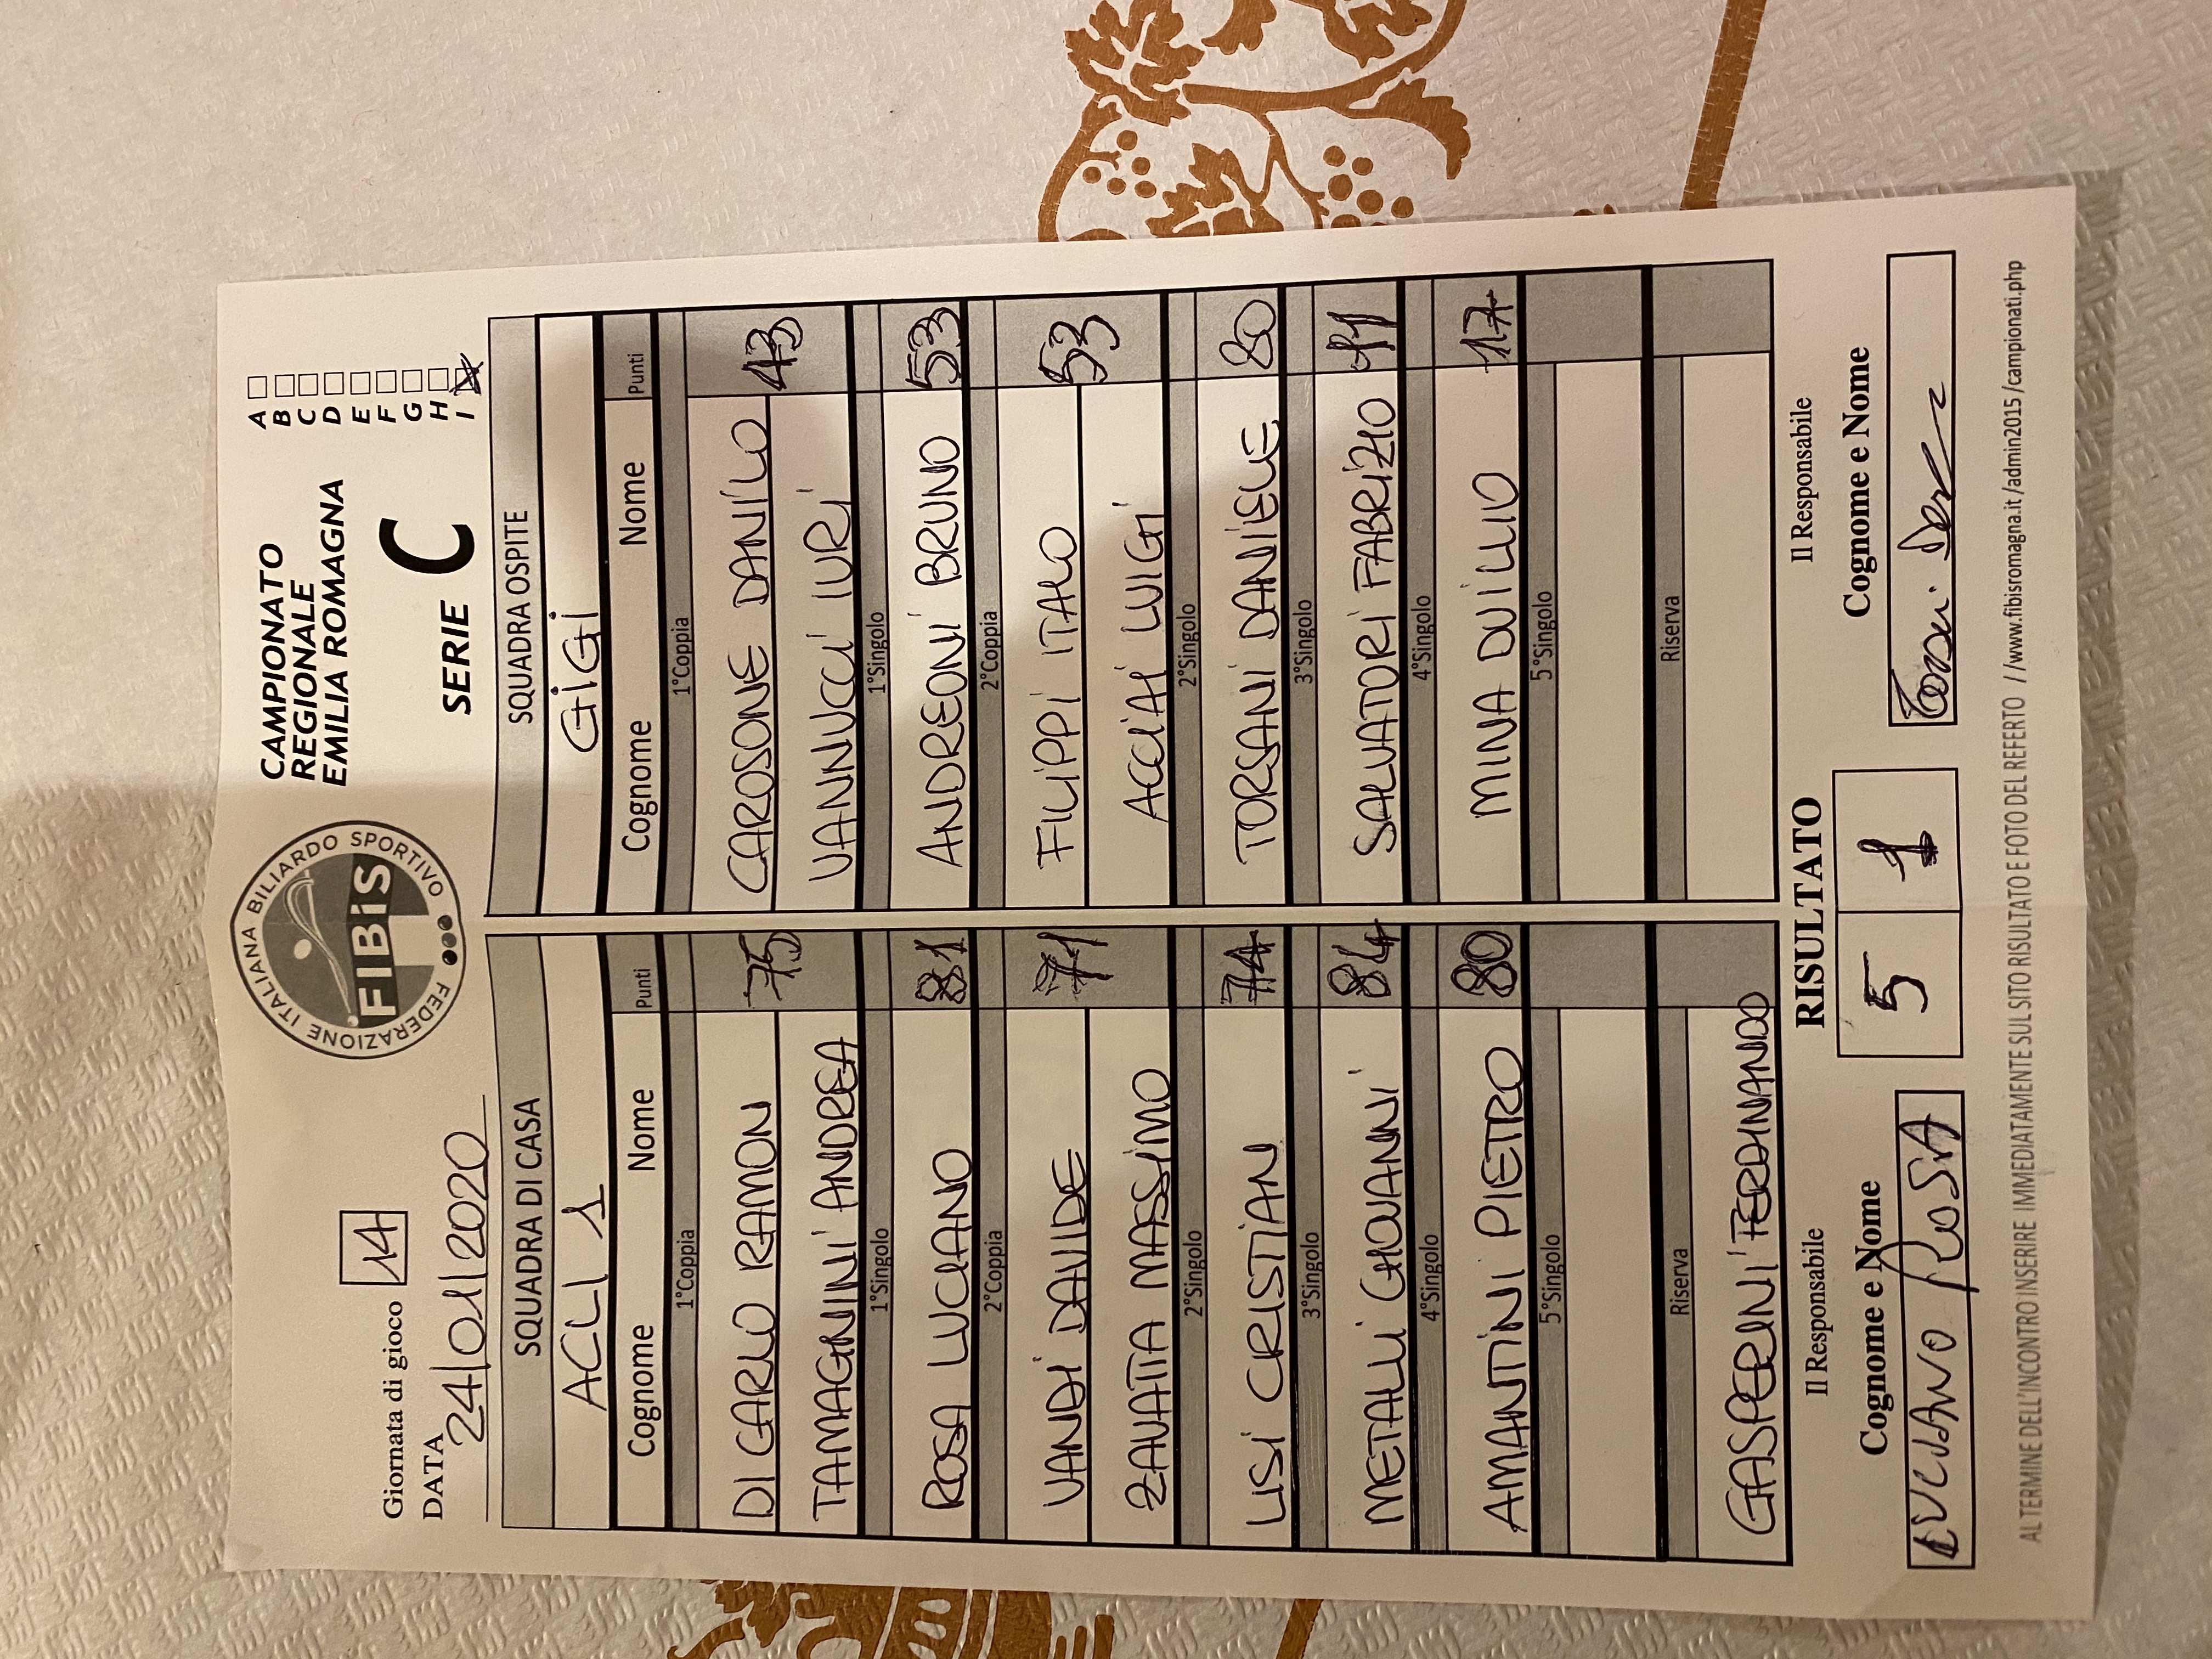 Giornata di gioco 14
DATA 24/01/2020
FEDERAZIONE ITALIANA BILIARDO SPORTIVO
FIBiS
CAMPIONATO
REGIONALE
EMILIA ROMAGNA
SERIE C
A
B
C
D
E
F
G
H
I X
SQUADRA DI CASA
ACLI 1
Cognome Nome Punti
1°Coppia
DI CARLO RAMON 75
TAMAGNINI ANDREA
1°Singolo
ROSA LUCIANO 81
2°Coppia
VANDI DAVIDE 71
ZAVATTA MASSIMO
2°Singolo
LISI CRISTIAN 74
3°Singolo
METALLI GIOVANNI 84
4°Singolo
AMANTINI PIETRO 80
5°Singolo
Riserva
GASPERINI FERDINANDO
SQUADRA OSPITE
GIGI
Cognome Nome Punti
1°Coppia
CAROSONE DANILO 43
VANNUCCI IURI
1°Singolo
ANDREONI BRUNO 53
2°Coppia
FILIPPI ITALO 53
ACCIAI LUIGI
2°Singolo
TORSANI DANIELE 80
3°Singolo
SALVATORI FABRIZIO
4°Singolo
MINA DUILIO 17
5°Singolo
Riserva
Il Responsabile
Cognome e Nome
LUCIANO ROSA
RISULTATO
5 1
Il Responsabile
Cognome e Nome
AL TERMINE DELL'INCONTRO INSERIRE IMMEDIATAMENTE SUL SITO RISULTATO E FOTO DEL REFERTO //www.fibisromagna.it/admin2015/campionati.php